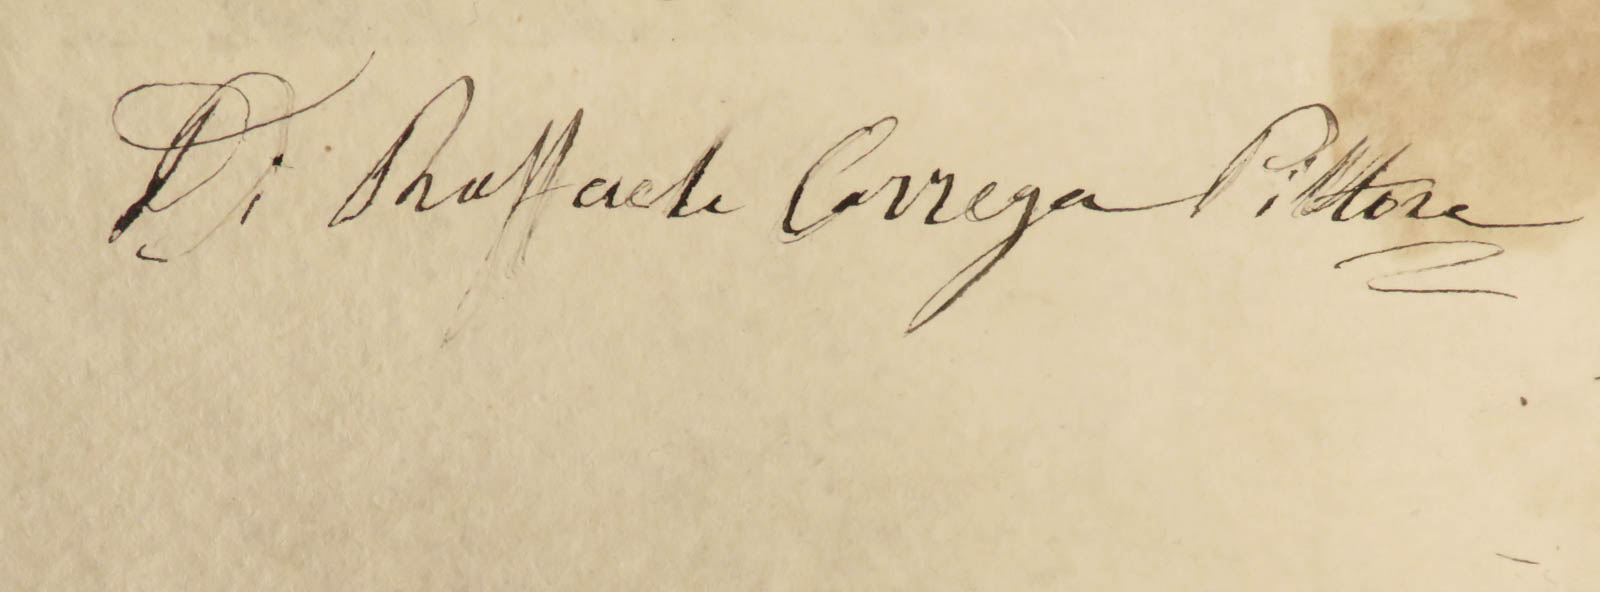 Di Raffaele Carrega Pittore